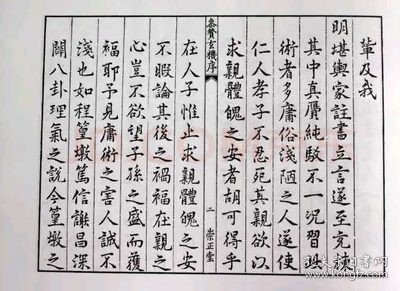 輩及我
明堪輿家註書立言遂至充棟
其中真贋純駁不一況習此
術者多庸俗淺陋之人遂使
仁人孝子不忍死其親欲以
求親體魄之安者胡可得乎
參贊玄機序
二
崇正堂
在人子惟止求親體魄之安
不暇論其後之禍福在親之
心豈不欲望子孫之盛而獲
福耶予見庸術之害人誠不
淺也如程篁墩篤信謝昌深
闢八卦理氣之說今篁墩之